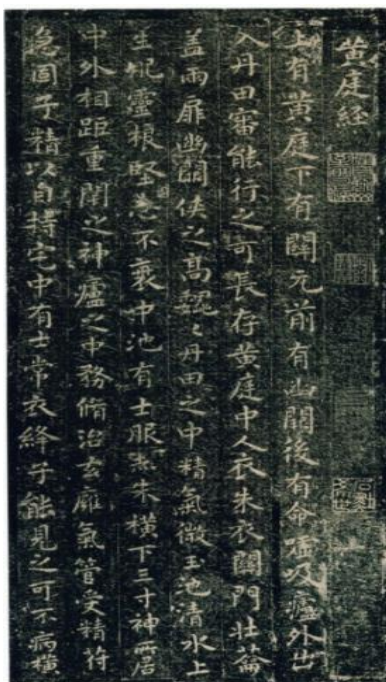 黄庭経
上有黄庭下有關元前有幽闕後有命嘘吸廬外出
入丹田審能行之可長存黄庭中人衣朱衣關門壮蘥
盖兩扉幽闕俠之高魏〻丹田之中精氣微玉池清水上
生肥靈根堅志不衰中池有士服赤朱横下三寸神所居
中外相距重閇之神廬之中務脩治玄廱氣管受精符
急固子精以自持宅中有士常衣絳子能見之可不病横